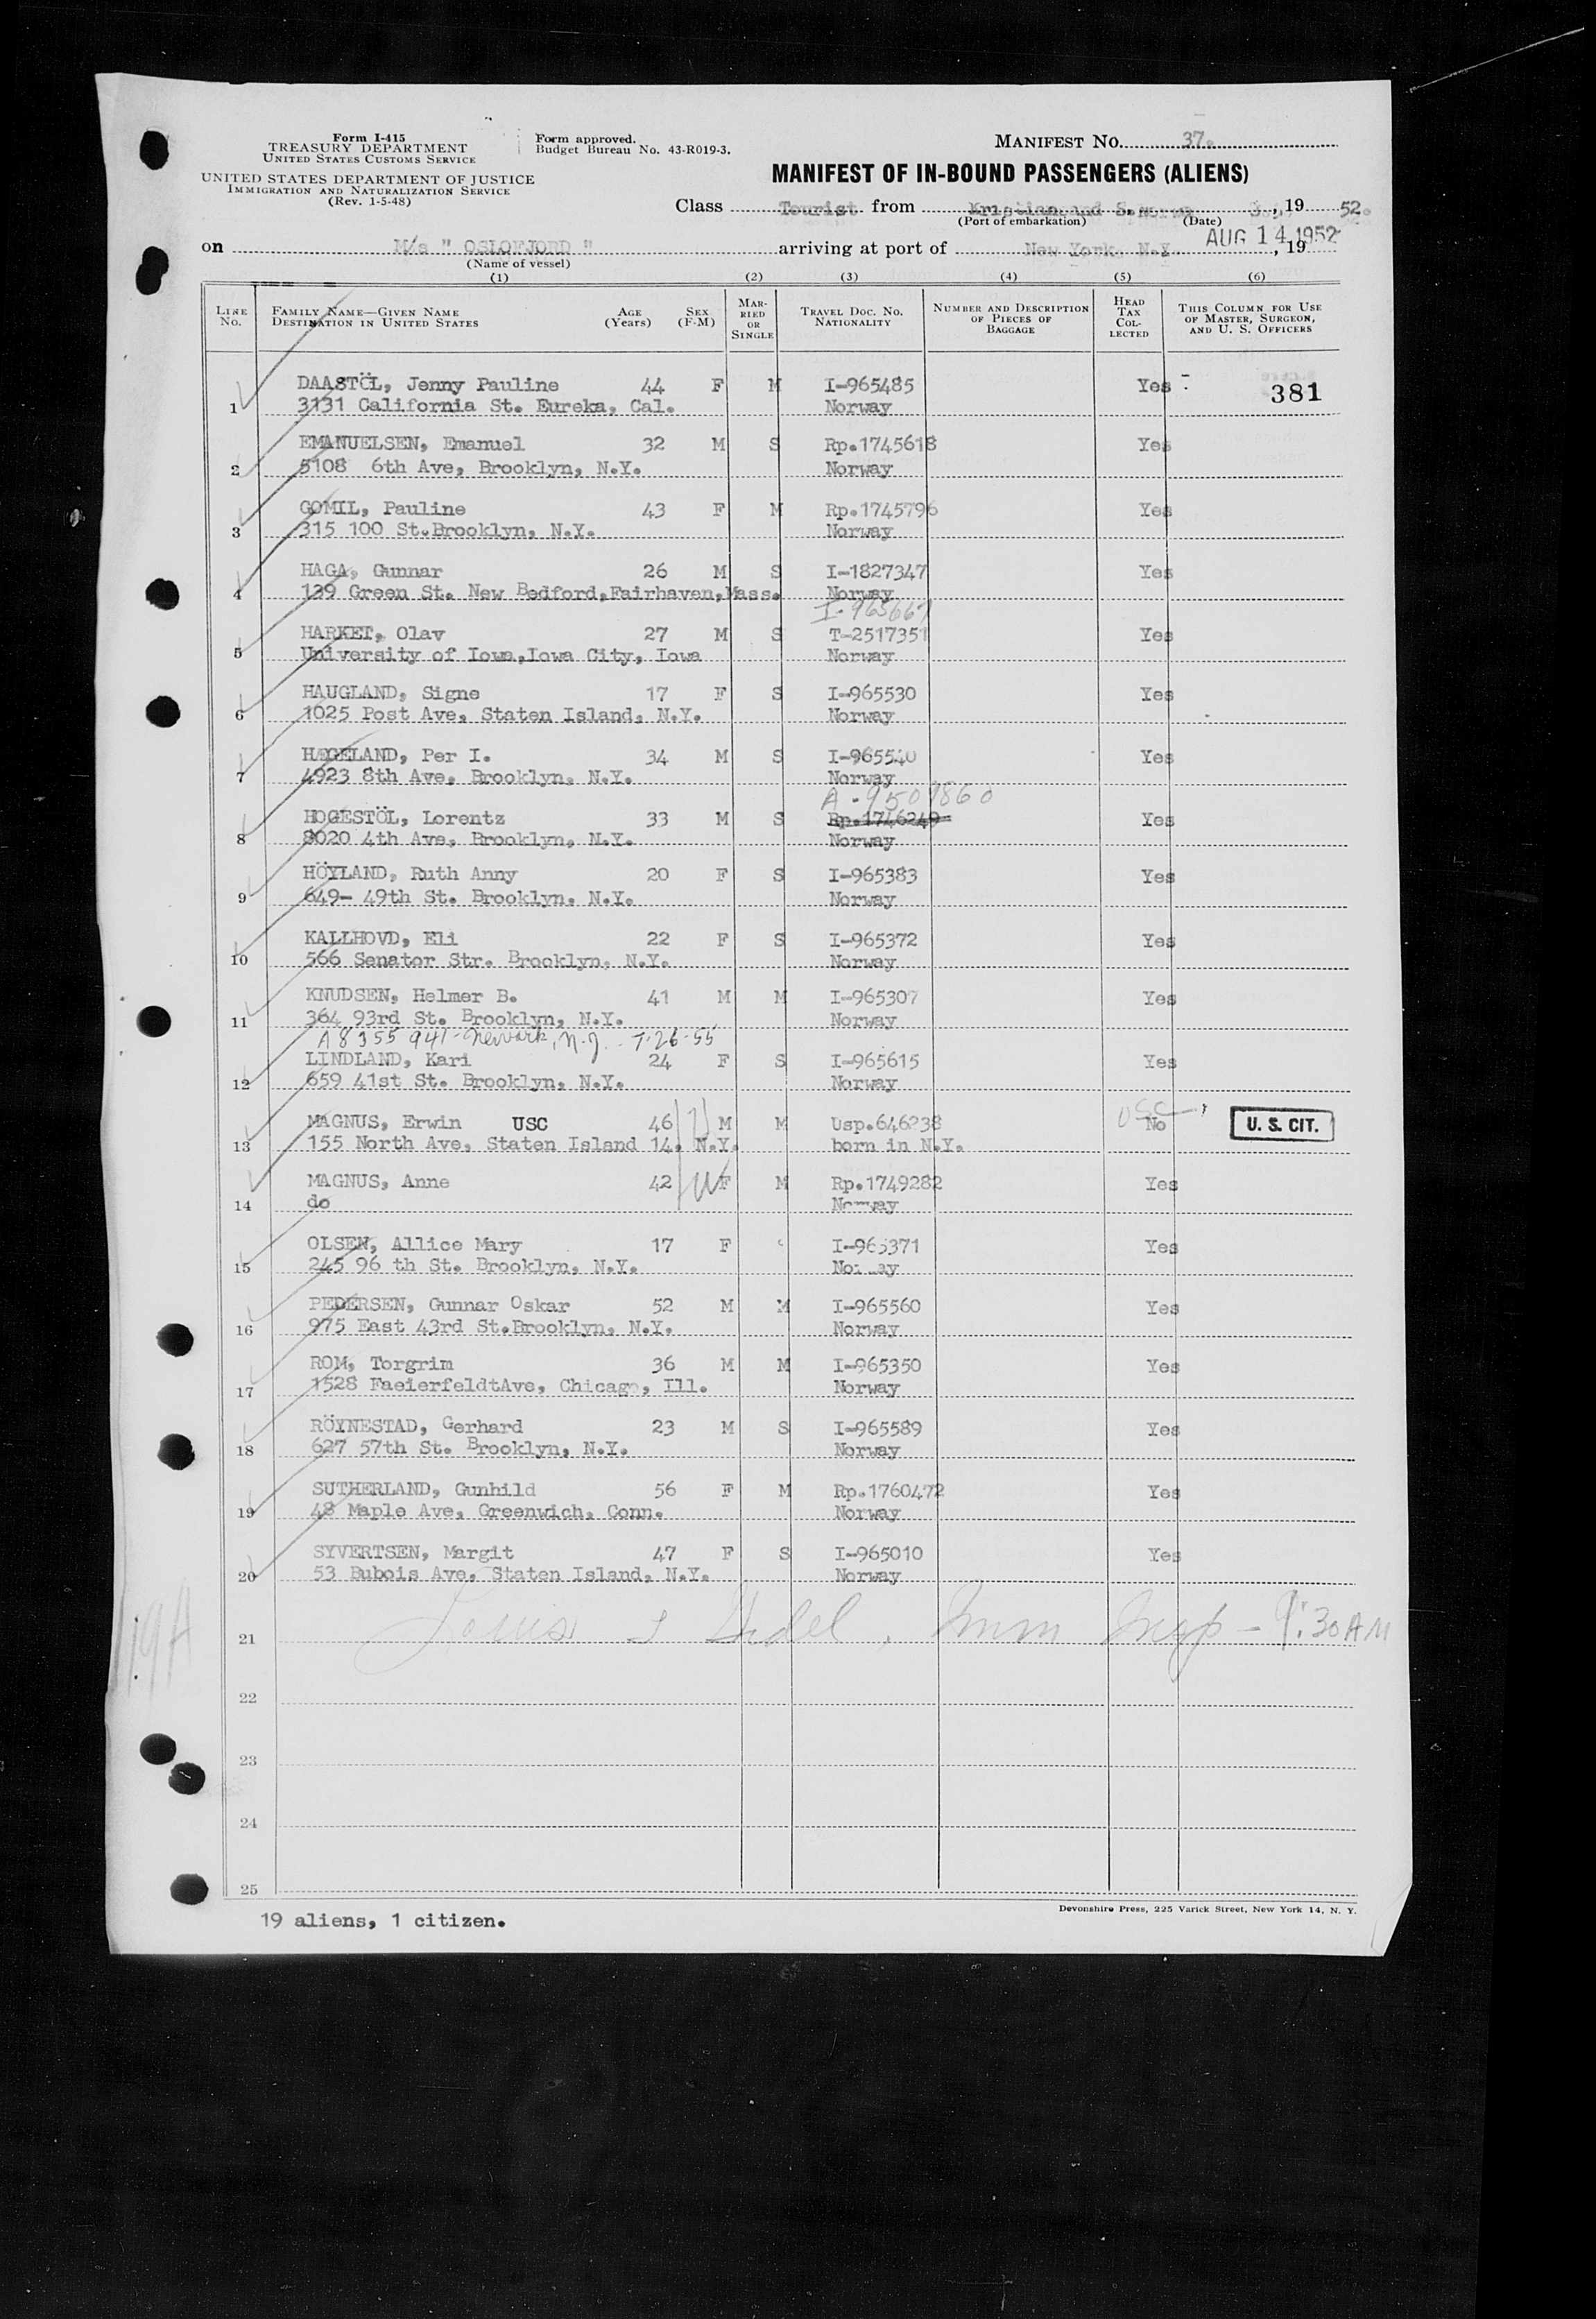 Form I-415
TREASURY DEPARTMENT
UNITED STATES CUSTOMS SERVICE
UNITED STATES DEPARTMENT OF JUSTICE
IMMIGRATION AND NATURALIZATION SERVICE
(Rev. 1-5-48)
Form approved.
Budget Bureau No. 43-R019-3.
MANIFEST NO. 37.
MANIFEST OF IN-BOUND PASSENGERS (ALIENS)
Class Tourist from Kristiansand S. Norway, 19 52.
(Port of embarkation) (Date)
on M/s " OSLOFJORD " arriving at port of New York, N.Y. AUG 14 1952, 19
(Name of vessel)
(1) (2) (3) (4) (5) (6)
LINE No. FAMILY NAME—GIVEN NAME DESTINATION IN UNITED STATES AGE (Years) SEX (F-M) MARRIED OR SINGLE TRAVEL DOC. NO. NATIONALITY NUMBER AND DESCRIPTION OF PIECES OF BAGGAGE HEAD TAX COLLECTED THIS COLUMN FOR USE OF MASTER, SURGEON, AND U. S. OFFICERS
DAASTÖL, Jenny Pauline 44 F M I-965485 Yes 381
1 3131 California St. Eureka, Cal. Norway
EMANUELSEN, Emanuel 32 M S Rp.1745618 Yes
2 5108 6th Ave, Brooklyn, N.Y. Norway
GOMIL, Pauline 43 F M Rp.1745796 Yes
3 315 100 St.Brooklyn, N.Y. Norway
HAGA, Gunnar 26 M S I-1827347 Yes
4 139 Green St. New Bedford,Fairhaven,Mass. Norway
I-965667
HARKET, Olav 27 M S T-2517351 Yes
5 University of Iowa,Iowa City, Iowa Norway
HAUGLAND, Signe 17 F S I-965530 Yes
6 1025 Post Ave, Staten Island, N.Y. Norway
HÆGELAND, Per I. 34 M S I-965540 Yes
7 4923 8th Ave, Brooklyn, N.Y. Norway
A-9507860
HOGESTÖL, Lorentz 33 M S Rp.1746249 Yes
8 8020 4th Ave, Brooklyn, N.Y. Norway
HÖYLAND, Ruth Anny 20 F S I-965383 Yes
9 649- 49th St. Brooklyn, N.Y. Norway
KALLHOVD, Eli 22 F S I-965372 Yes
10 566 Senator Str. Brooklyn, N.Y. Norway
KNUDSEN, Helmer B. 41 M M I-965307 Yes
11 364 93rd St. Brooklyn, N.Y. Norway
A8355941-Newark, N.J. - 7-26-55
LINDLAND, Kari 24 F S I-965615 Yes
12 659 41st St. Brooklyn, N.Y. Norway
MAGNUS, Erwin USC 46 M M Usp.646238 USC No U. S. CIT.
13 155 North Ave, Staten Island 14. N.Y. born in N.Y.
MAGNUS, Anne 42 F M Rp.1749282 Yes
14 do Norway
OLSEN, Allice Mary 17 F I-965371 Yes
15 245 96 th St. Brooklyn, N.Y. Norway
PEDERSEN, Gunnar Oskar 52 M M I-965560 Yes
16 975 East 43rd St.Brooklyn, N.Y. Norway
ROM, Torgrim 36 M M I-965350 Yes
17 1528 FaeierfeldtAve, Chicago, Ill. Norway
RÖYNESTAD, Gerhard 23 M S I-965589 Yes
18 627 57th St. Brooklyn, N.Y. Norway
SUTHERLAND, Gunhild 56 F M Rp.1760472 Yes
19 48 Maple Ave, Greenwich, Conn. Norway
SYVERTSEN, Margit 47 F S I-965010 Yes
20 53 Bubois Ave, Staten Island, N.Y. Norway
21 Louis Imm Insp - 9:30 AM
22
23
24
25
19 aliens, 1 citizen.
Devonshire Press, 225 Varick Street, New York 14, N. Y.
19A